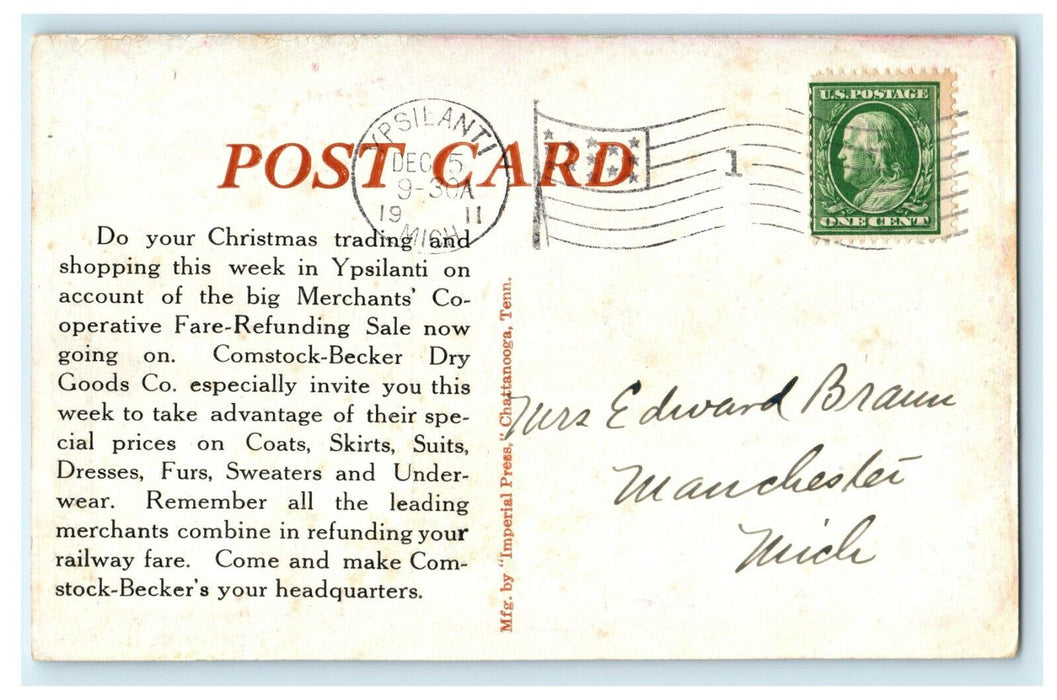 POST CARD
YPSILANTI
DEC 5
9-30A
19 11
MICH.
1
U.S. POSTAGE
ONE CENT
Do your Christmas trading and
shopping this week in Ypsilanti on
account of the big Merchants' Co-
operative Fare-Refunding Sale now
going on. Comstock-Becker Dry
Goods Co. especially invite you this
week to take advantage of their spe-
cial prices on Coats, Skirts, Suits,
Dresses, Furs, Sweaters and Under-
wear. Remember all the leading
merchants combine in refunding your
railway fare. Come and make Com-
stock-Becker's your headquarters.
Mfg. by "Imperial Press," Chattanooga, Tenn.
Mrs Edward Braun
Manchester
Mich